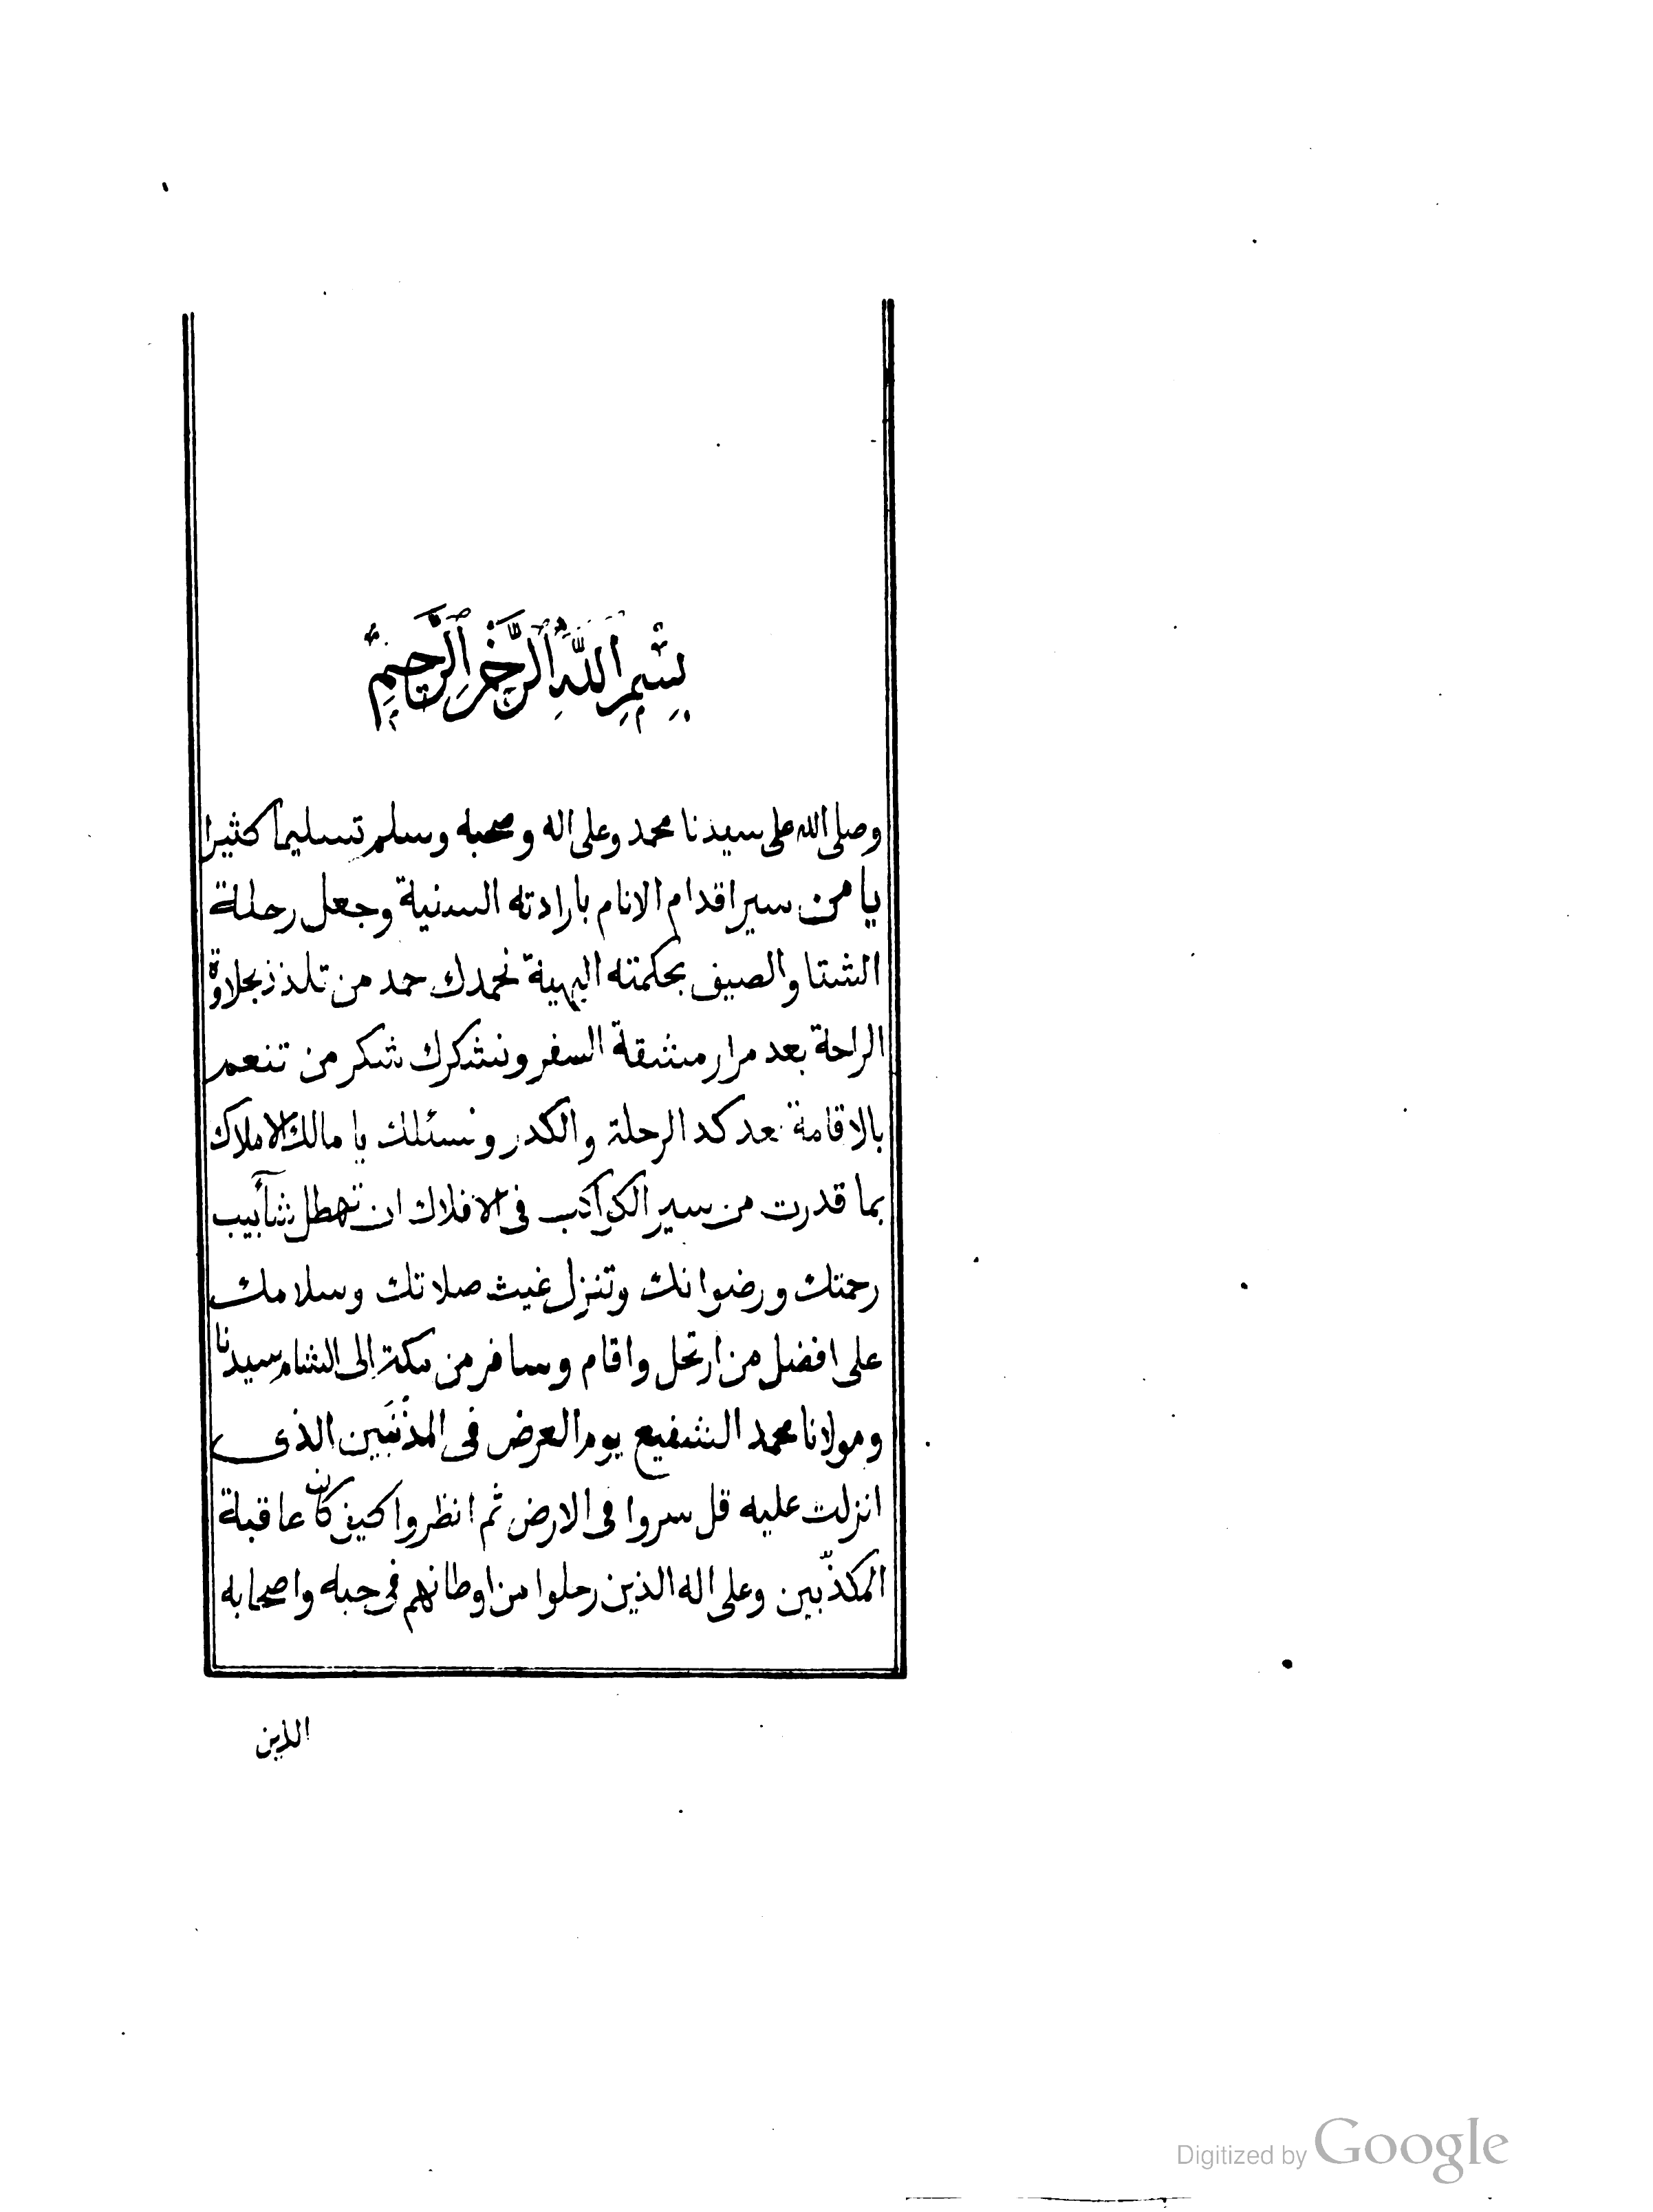 بِسْمِ اللَّهِ الرَّحْمٰنِ الرَّحِيمِ
وصلى الله على سيدنا محمد وعلى اله وصحبه وسلم تسليما كثيرا
يا من سير اقدام الانام بارادته السنية وجعل رحلة
الشتا والصيف بحكمته البهية نحمدك حمد من تلذذ بحلاوة
الراحة بعد مرار مشقة السفر ونشكرك شكر من تنعم
بالاقامة بعد كد الرحلة والكدر ونسئلك يا مالك الاملاك
بما قدرت من سير الكواكب فى الافلاك ان تهطل شآبيب
رحمتك ورضوانك وتنزل غيث صلاتك وسلامك
على افضل من ارتحل واقام وسافر من مكة الى الشام سيدنا
ومولانا محمد الشفيع يوم العرض فى المذنبين الذى
انزلت عليه قل سروا فى الارض ثم انظروا كيف كان عاقبة
المكذّبين وعلى اله الذين رحلوا من اوطانهم فى حبه واصحابه
الذين
Digitized by Google